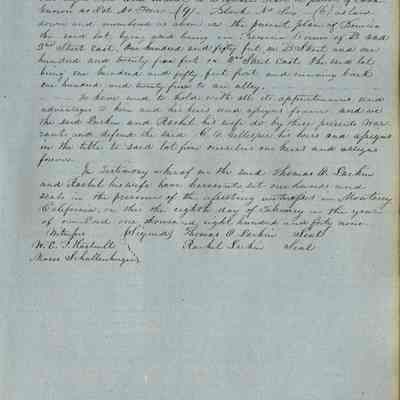 known as Lot No Four (4) Block No Six (6) as laid
down and numbered as above on the present plan of Benicia
the said lot lying and being in Benicia Corner of D and
2nd Street East. One hundred and fifty feet on D Street and one
hundred and twenty five feet on 2nd Street East. The said lot
being one hundred and fifty feet front and running back
one hundred and twenty five to an alley.
To have and to hold with all its appurtenances and
advantages to him and his heirs and assigns forever and we
the said Larkin and Rachel his wife do by these presents War
rant and defend the said C. V. Gillespie his heirs and assigns
in the title to said lot from ourselves our heirs and assigns
forever.
In Testimony whereof we the said Thomas O. Larkin
and Rachel his wife have hereunto set our hands and
seals in the presence of the assisting witnesses in Monterey
California on this the eighth day of February in the year
of our Lord one thousand eight hundred and forty nine.
Witness (Signed) Thomas O Larkin Seal
W. E. P. Hartnell Rachel Larkin Seal
Moses Schallenberger